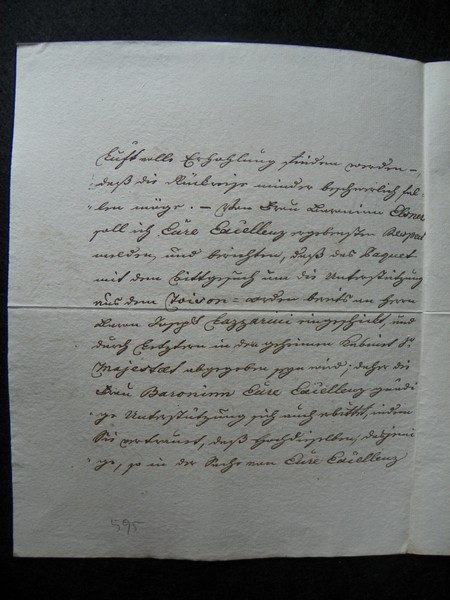 Lustvolle Erhohlung finden werden –,
daß die Rückreise minder beschwerlich fal-
len möge. – Von Frau Baroninn Ebner
soll ich Eure Excellenz ergebensten Respect
melden, und berichten, daß das Paquet
mit dem Bittgesuch um die Unterstützung
aus dem Toison-orden bereits an Herrn
Baron Joseph Lazzarini eingeschickt, und
durch Letztern in das geheimen Cabinet Sr
Majestæt abgegeben seyn wird; daher die
Frau Baroninn Eure Excellenz gnädi-
ge Unterstützung sich auch erbittet, indem
Sie vertrauet, daß Hochdieselben, dasjeni-
ge, so in der Sache von Eure Excellenz
595